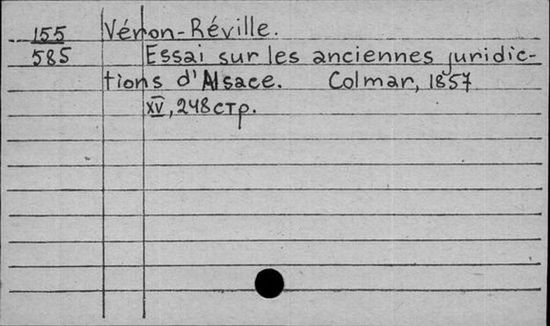 155 Véron-Réville.
585 Essai sur les anciennes juridic-
tions d'Alsace. Colmar, 1857
XV, 248 стр.